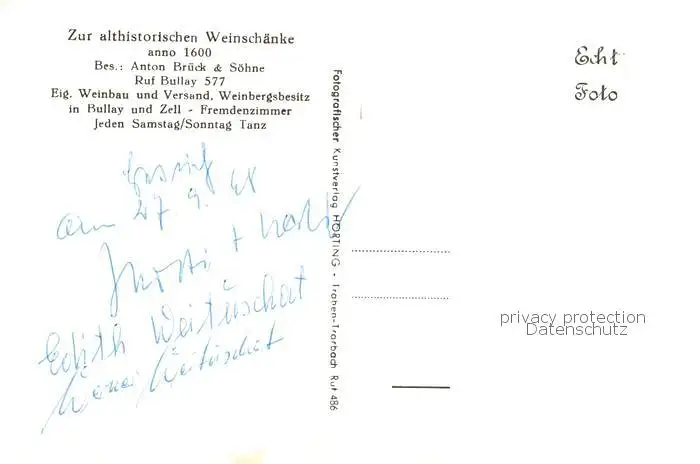 Zur althistorischen Weinschänke
anno 1600
Bes.: Anton Brück & Söhne
Ruf Bullay 577
Eig. Weinbau und Versand, Weinbergsbesitz
in Bullay und Zell - Fremdenzimmer
Jeden Samstag/Sonntag Tanz
am 27. 9. 68
Edith Weituschat
Weituschat
Fotografischer Kunstverlag HORTING - Traben-Trarbach Ruf 486
Echt
Foto
privacy protection
Datenschutz